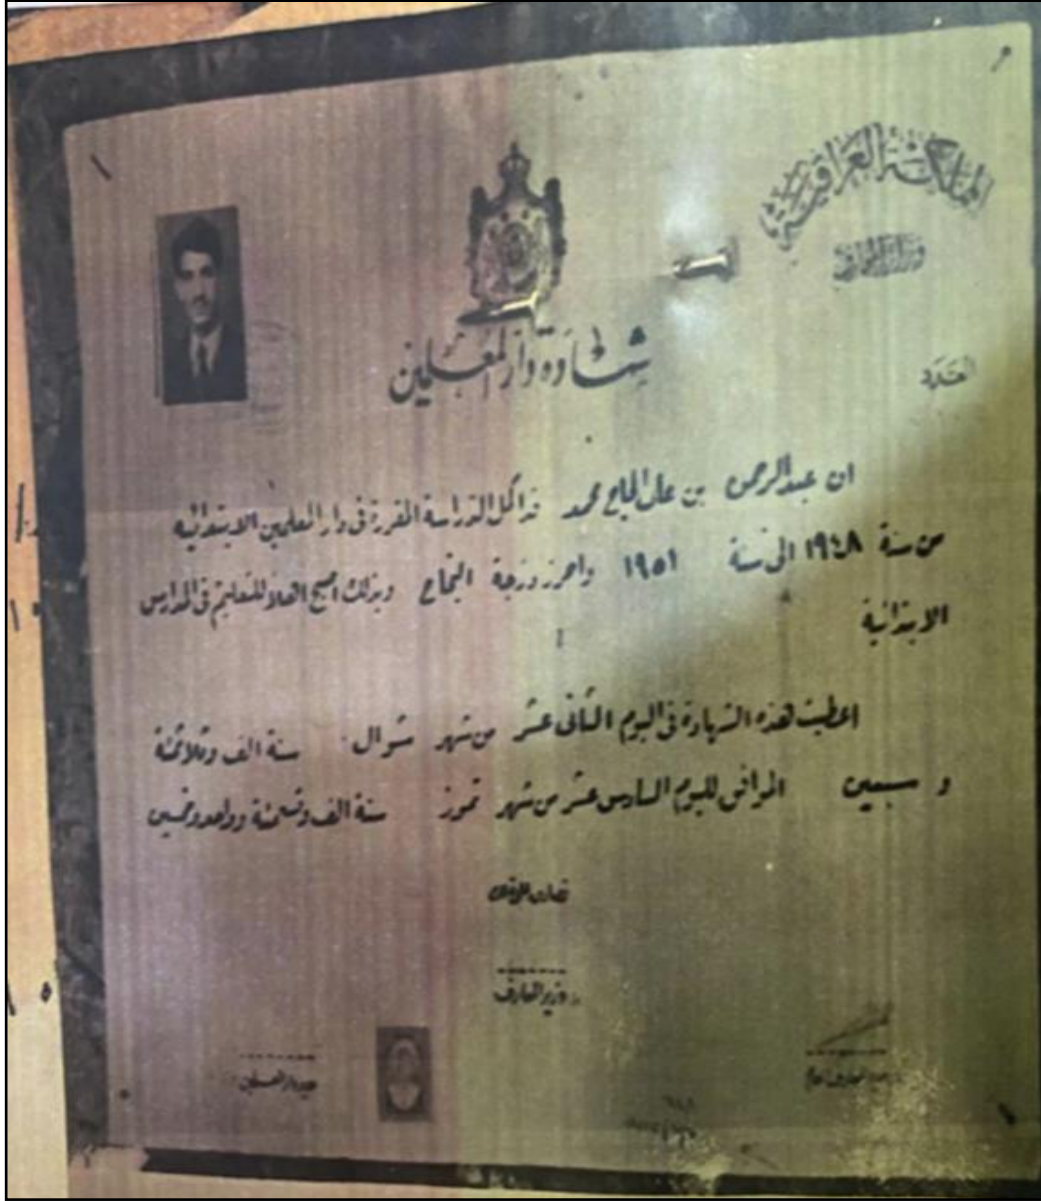 المملكة العراقية
وزارة المعارف
شهادة دار المعلمين
العدد
ان عبدالرحمن بن علي الحاج محمد قد اكمل الدراسة المقررة في دار المعلمين الابتدائية
من سنة ١٩٤٨ الى سنة ١٩٥١ واحرز درجة النجاح وبذلك اصبح اهلا للتعليم في المدارس
الابتدائية
اعطيت هذه الشهادة في اليوم الثاني عشر من شهر شوال سنة الف وثلاثمئة
و سبعين الموافق لليوم السادس عشر من شهر تموز سنة الف وتسعمئة وواحد وخمسين
وزير المعارف
مدير المعارف العام
مدير دار المعلمين